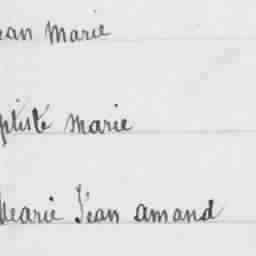 ean Marie
ptiste Marie
Marie Jean amand